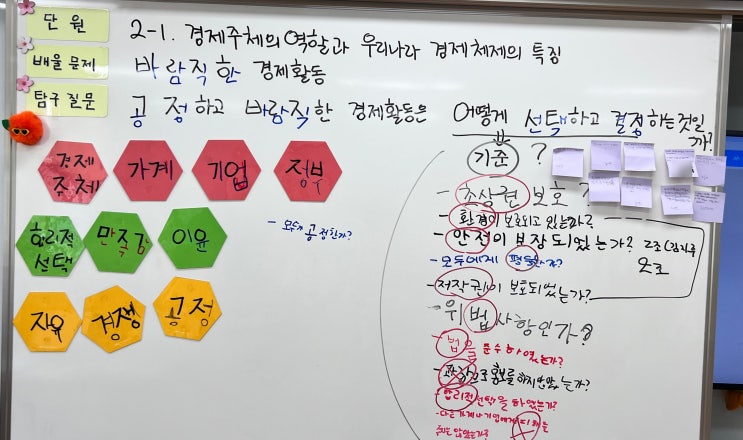 단 원
2-1. 경제주체의 역할과 우리나라 경제체제의 특징
배울 문제
바람직한 경제활동
탐구 질문
공정하고 바람직한 경제활동은 어떻게 선택하고 결정하는것일까?
기준 ?
경제주체
가계
기업
정부
합리적 선택
만족감
이윤
자유
경쟁
공정
- 모두 공정한가?
- 초상권 보호 ?
- 환경이 보호되고 있는가?
- 안전이 보장 되었는가?
- 모두에게 평등한가?
- 저작권이 보호되었는가?
- 위법사항인가?
- 법을 준수하였는가?
- 과장으로 홍보를 하지 않았는가?
- 합리적 선택을 하였는가?
- 다른 가게나 기업에게 피해는